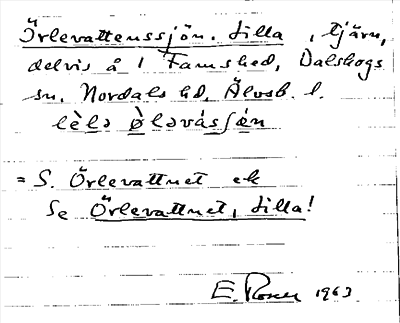 Örlevattenssjön. Lilla, tjärn,
delvis å 1 Famshed, Dalskogs
sn, Nordals hd, Älvsb. l.
lèlə ø̀ləvásʃøn
= S. Örlevattnet ek
Se Örlevattnet, Lilla!
E. Rosen 1963